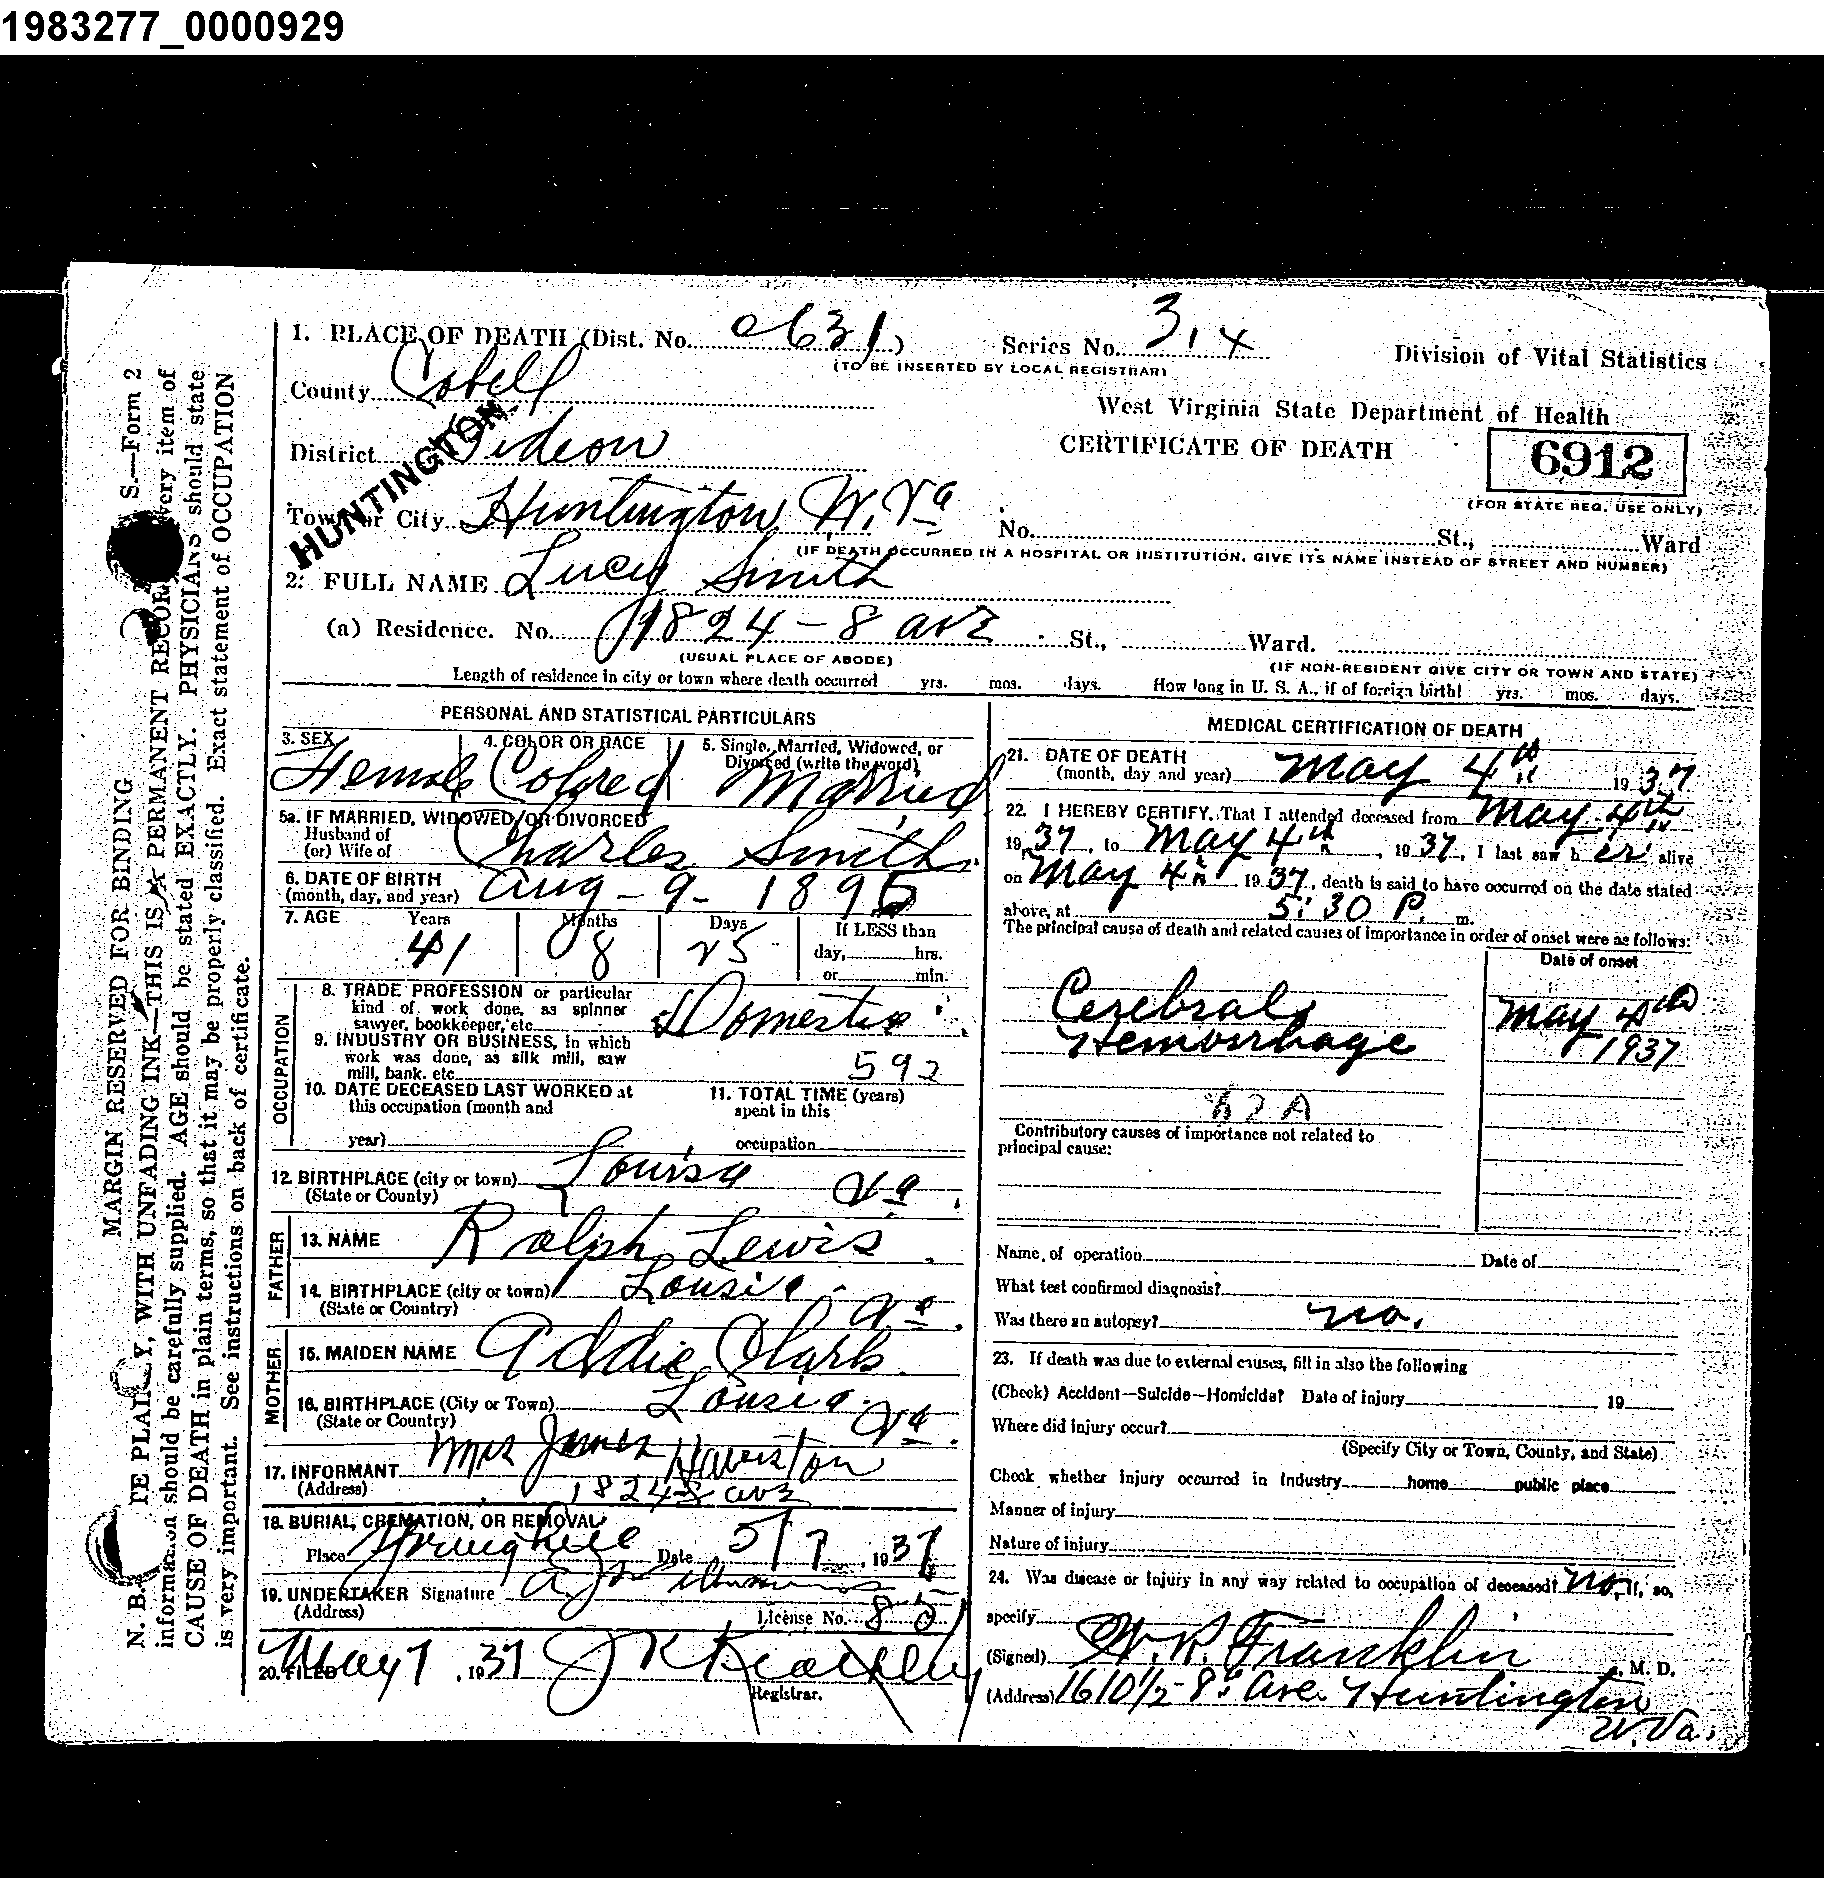 1983277_0000929
1. PLACE OF DEATH (Dist. No. 0631)
Series No. 314
(TO BE INSERTED BY LOCAL REGISTRAR)
Division of Vital Statistics
County Cabell
West Virginia State Department of Health
CERTIFICATE OF DEATH
6912
(FOR STATE REG. USE ONLY)
District Gideon
HUNTINGTON
Town or City Huntington W. Va
No. St., Ward
(IF DEATH OCCURRED IN A HOSPITAL OR INSTITUTION, GIVE ITS NAME INSTEAD OF STREET AND NUMBER)
2. FULL NAME Lucy Smith
(a) Residence. No. 1824 - 8 ave St., Ward.
(USUAL PLACE OF ABODE)
(IF NON-RESIDENT GIVE CITY OR TOWN AND STATE)
Length of residence in city or town where death occurred yrs. mos. days. How long in U. S. A., if of foreign birth? yrs. mos. days.
PERSONAL AND STATISTICAL PARTICULARS
3. SEX 4. COLOR OR RACE 5. Single, Married, Widowed, or
Divorced (write the word)
Female Colored Married
5a. IF MARRIED, WIDOWED, OR DIVORCED
Husband of
(or) Wife of Charles Smith
6. DATE OF BIRTH
(month, day, and year) Aug - 9 - 1895
7. AGE Years Months Days If LESS than
41 8 25 day, hrs.
or min.
OCCUPATION
8. TRADE PROFESSION or particular
kind of work done, as spinner
sawyer, bookkeeper, etc. Domestic
9. INDUSTRY OR BUSINESS, in which
work was done, as silk mill, saw
mill, bank. etc. 592
10. DATE DECEASED LAST WORKED at
this occupation (month and
year)
11. TOTAL TIME (years)
spent in this
occupation
12. BIRTHPLACE (city or town) Louisa Va.
(State or County)
FATHER
13. NAME Ralph Lewis
14. BIRTHPLACE (city or town) Lousia Va.
(State or Country)
MOTHER
15. MAIDEN NAME Addie Clark
16. BIRTHPLACE (City or Town) Lousia Va.
(State or Country)
17. INFORMANT Mrs James Hairston
(Address) 1824 8 ave
18. BURIAL, CREMATION, OR REMOVAL
Place Springhill Date 5/7, 1937
19. UNDERTAKER Signature
(Address) License No. 85
20. FILED May 7, 1937
Registrar.
MEDICAL CERTIFICATION OF DEATH
21. DATE OF DEATH
(month, day and year) May 4th 1937
22. I HEREBY CERTIFY, That I attended deceased from May 4th
1937, to May 4th, 1937, I last saw her alive
on May 4th 1937, death is said to have occurred on the date stated
above, at 5:30 P. m.
The principal cause of death and related causes of importance in order of onset were as follows:
Date of onset
Cerebral
Hemorrhage
May 4th
1937
82A
Contributory causes of importance not related to
principal cause:
Name of operation Date of
What test confirmed diagnosis?
Was there an autopsy? no.
23. If death was due to external causes, fill in also the following
(Check) Accident—Suicide—Homicide? Date of injury 19
Where did injury occur?
(Specify City or Town, County, and State)
Check whether injury occurred in industry home public place
Manner of injury
Nature of injury
24. Was disease or injury in any way related to occupation of deceased? no. If, so,
specify
(Signed) W. R. Franklin M. D.
(Address) 1610½ - 8th Ave. Huntington
W. Va.
S.—Form 2
MARGIN RESERVED FOR BINDING
N. B. PLAINLY, WITH UNFADING INK—THIS IS A PERMANENT RECORD every item of
information should be carefully supplied. AGE should be stated EXACTLY. PHYSICIANS should state
CAUSE OF DEATH in plain terms, so that it may be properly classified. Exact statement of OCCUPATION
is very important. See instructions on back of certificate.